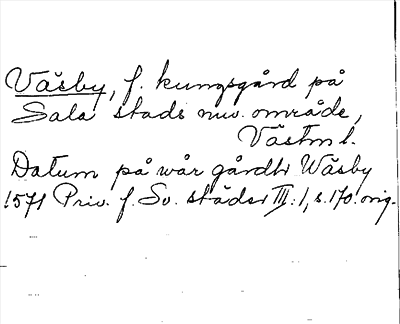 Väsby, f. kungsgård på
Sala stads nuv. område,
Västm l.
Datum på wår gårdh Wäsby
1571 Priv. f. Sv. städer III:1, s. 170. orig.